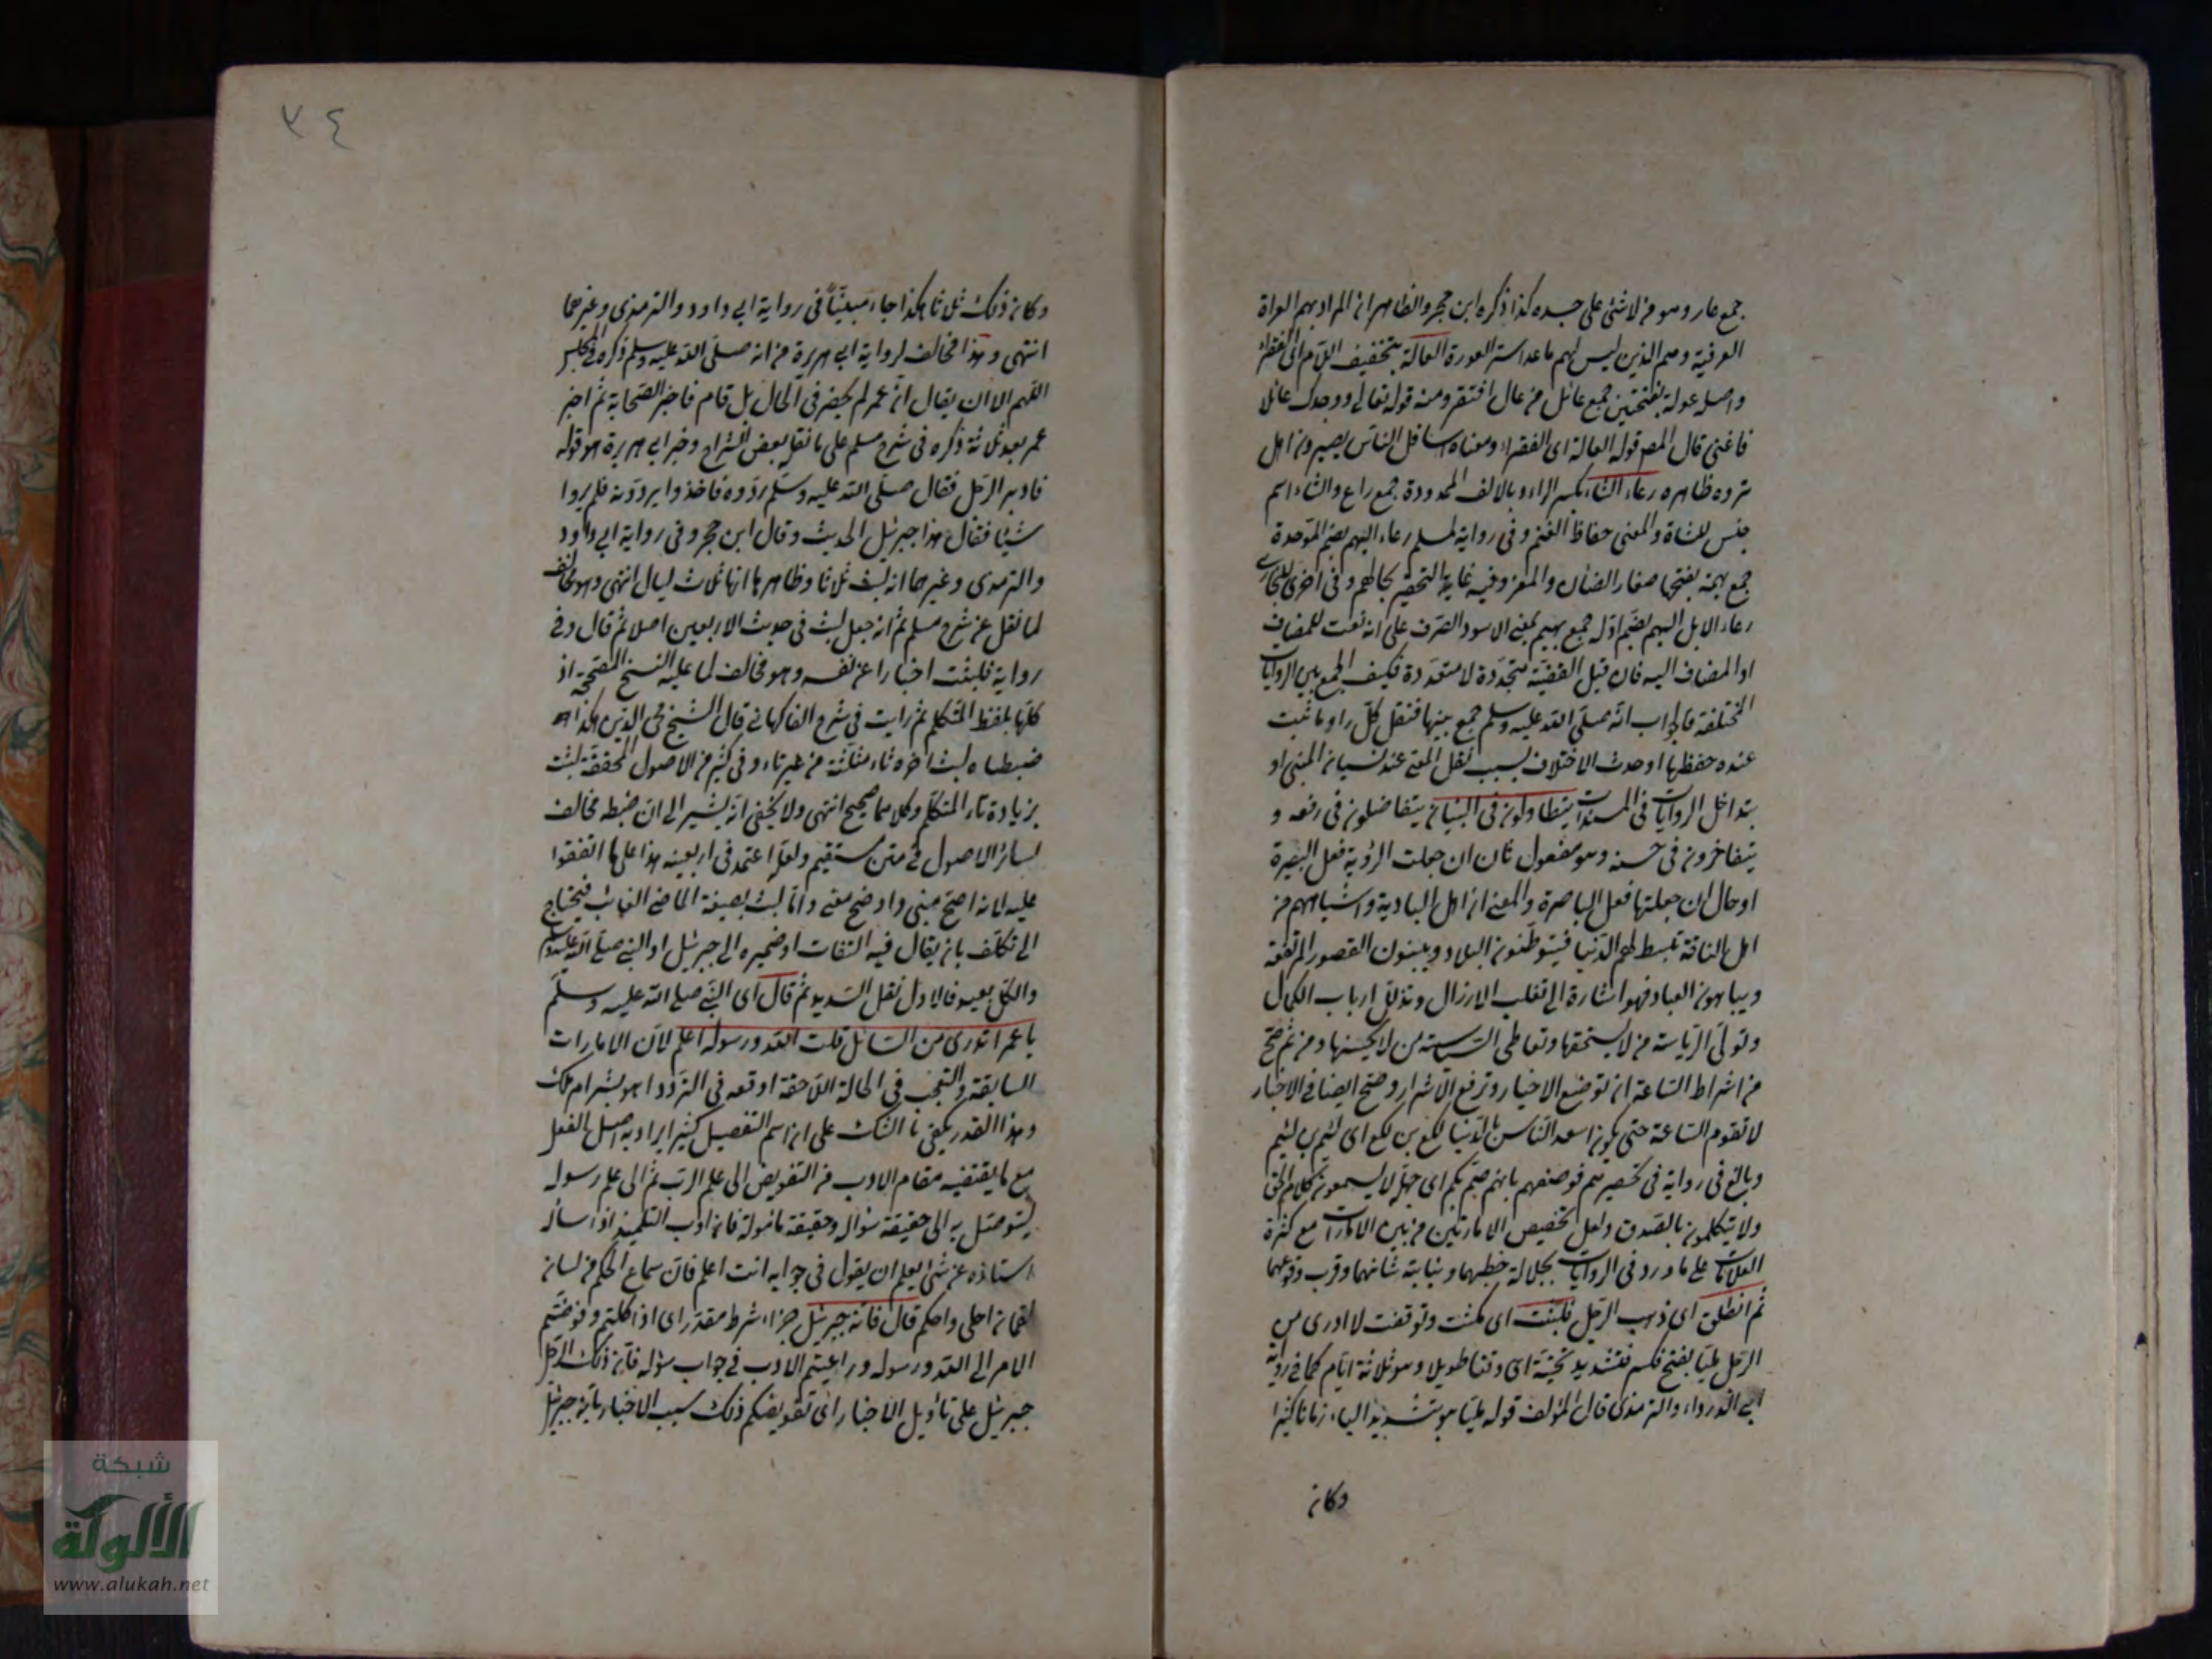 جمع عار وهو من لا شئ على جسده كذا ذكره ابن حجر والظاهر ان المراد بهم العراة
العرفية وهم الذين ليس لهم ما عدا ستر العورة العالة بتخفيف اللام اى الفقراء
واصله عولة بفتحتين جمع عائل من عال افتقر ومنه قوله تعالى ووجدك عائلا
فاغنى قال المص قوله العالة اى الفقراء ومعناه اسافل الناس يصيرون اهل
ثروة ظاهرة رعاء الشاء بكسر الراء وبالالف الممدودة جمع راع والشاء اسم
جنس للشاة والمعنى حفاظ الغنم وفى رواية لمسلم رعاء البهم بضم الموحدة
جمع بهمة بفتحها صغار الضأن والمعز وفيه غاية التحقير بحالهم وفى اخرى للبخارى
رعاء الابل البهم بضم اوله جمع بهيم بمعنى الاسود الصرف على انه نعت للمضاف
او المضاف اليه فان قيل القضية متحدة لا متعددة فكيف الجمع بين الروايات
المختلفة فالجواب انه صلى الله عليه وسلم جمع بينها فنقل كل راو ما ثبت
عنده حفظها او حدث الاختلاف بسبب نقل المعنى عند نسيان المبنى او
بتداخل الروايات فى المسندات يتطاولون فى البنيان يتفاضلون فى رفعه و
يتفاخرون فى حسنه وهو مفعول ثان ان جعلت الرؤية فعل البصيرة
او حال ان جعلتها فعل الباصرة والمعنى ان اهل البادية واشباههم من
اهل الفاقة تبسط لهم الدنيا فيتوطنون البلاد ويبنون القصور المرتفعة
ويباهون العباد فهو اشارة الى تغلب الارزال وتذلل ارباب الكمال
وتولى الرياسة من لا يستحقها وتعاطى السياسة من لا يحسنها ومن ثم صح
من اشراط الساعة ان توضع الاخيار وترفع الاشرار وصح ايضا فى الاخبار
لا تقوم الساعة حتى يكون اسعد الناس بالدنيا لكع بن لكع اى لئيم بن لئيم
وبالغ فى رواية فى تحقيرهم فوصفهم بانهم صم بكم اى جهل لا يسمعون كلام الحق
ولا يتكلمون بالصدق ولعل تخصيص الامارتين من بين الامارات مع كثرة
العلامات على ما ورد فى الروايات لجلالة خطبهما ونباهة شانهما وقرب وقوعهما
ثم انطلق اى ذهب الرجل فلبثت اى مكثت وتوقفت لا ادرى من
الرجل مليا بفتح فكسر فتشديد تحتية اى وقتا طويلا وهو ثلاثة ايام كما فى رواية
ابى الدرداء والترمذى قال المؤلف قوله مليا هو بتشديد الياء زمانا كثيرا
وكان
٧٤
وكان ذلك ثلثا هكذا جاء مبينا فى رواية ابى داود والترمذى وغيرهما
انتهى وهذا مخالف لرواية ابى هريرة من انه صلى الله عليه وسلم ذكره فى المجلس
اللهم الا ان يقال ان عمر لم يحضر فى الحال بل قام فاخبر الصحابة ثم اخبر
عمر بعد ثلثة ذكره فى شرح مسلم على ما نقل بعض الشراح وخبر ابى هريرة هو قوله
فادبر الرجل فقال صلى الله عليه وسلم ردوه فاخذوا يردونه فلم يروا
شيئا فقال هذا جبرئيل الحديث وقال ابن حجر وفى رواية ابى داود
والترمذى وغيرهما انه لبث ثلاثا وظاهرها انها ثلاث ليال انتهى وهو مخالف
لما نقل عن شرح مسلم ثم انه جعل لبث فى حديث الاربعين اصلا ثم قال وفى
رواية فلبثت اخبارا عن نفسه وهو مخالف لما عليه النسخ المصححة اذ
كلها بلفظ المتكلم ثم رايت فى شرح الفاكهانى قال الشيخ محى الدين هكذا
ضبطناه لبث اخره ثاء مثلثة من غير تاء وفى كثير من الاصول المحققة لبثت
بزيادة تاء المتكلم وكلاهما صحيح انتهى ولا يخفى انه يشير الى ان ضبطه مخالف
لسائر الاصول فى متن مستقيم ولعله اعتمد فى اربعينه هذا على ما اتفقوا
عليه لانه اصح مبنى واوضح معنى واما لبث بصيغة الماضى الغائب فيحتاج
الى تكلف بان يقال فيه التفات او ضميره الى جبرئيل او النبى صلى الله عليه وسلم
والكل بعيد فالاول نقل السديد ثم قال اى النبى صلى الله عليه وسلم
يا عمر اتدرى من السائل قلت الله ورسوله اعلم لان الامارات
السابقة والتعجب فى الحالة اللاحقة اوقعه فى التردد اهو بشر ام ملك
وهذا القدر يكفى بالشك على ان اسم التفضيل كثيرا يراد به اصل الفعل
مع ما يقتضيه مقام الادب من التفويض الى علم الرب ثم الى علم رسوله
ليتوصل به الى حقيقة سؤاله وحقيقة مأموله فان ادب التلميذ اذا سأله
استاذه عن شئ يعلم ان يقول فى جوابه انت اعلم فان سماع الحكم من لسان
لقمان احلى واحكم قال فانه جبرئيل جزاء شرط مقدر اى اذا كلتم وفوضتم
الامر الى الله ورسوله وراعيتم الادب فى جواب سؤله فان ذلك الرجل
جبرئيل على تأويل الاخبار اى تفويضكم ذلك سبب الاخبار بانه جبرئيل
شبكة
الألوكة
www.alukah.net